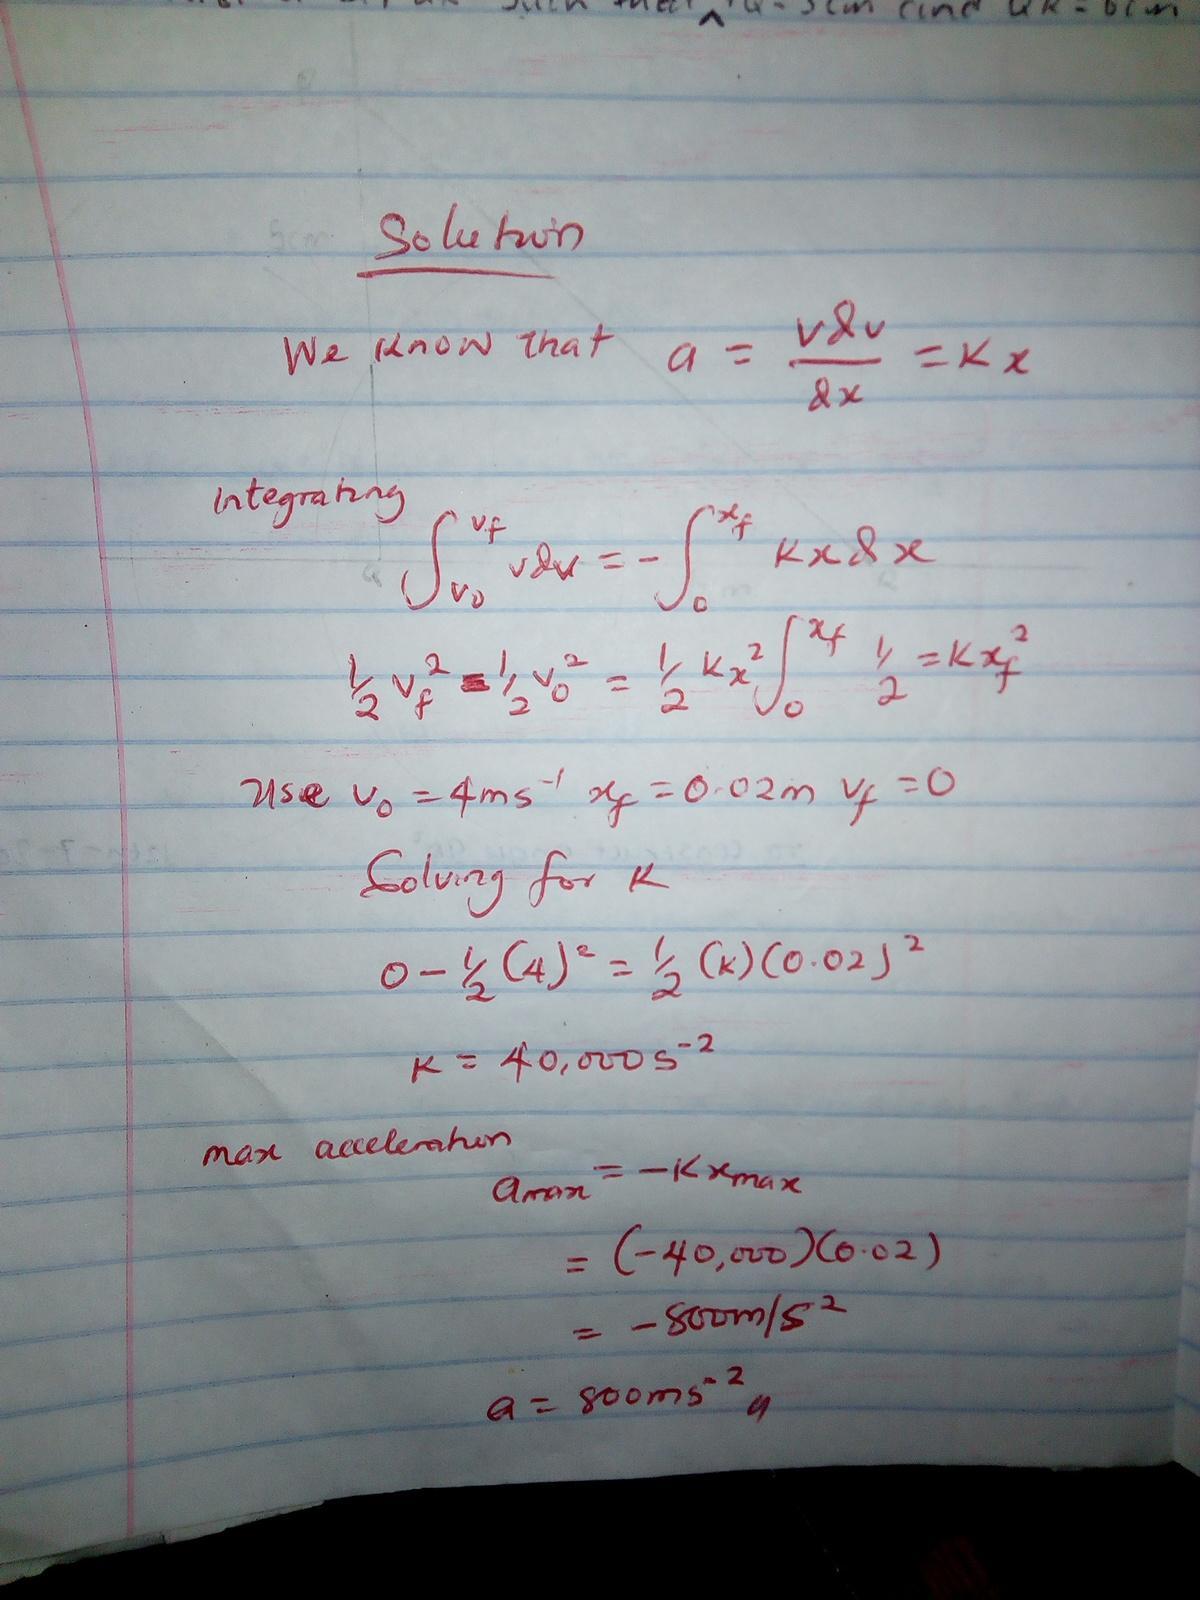 such that Q = 5cm and QR = 6cm
Solution
We know that a = vdv/dx = Kx
Integrating
∫_{v₀}^{v_f} vdv = - ∫_{0}^{x_f} Kxdx
1/2 v_f² - 1/2 v₀² = 1/2 Kx² ∫_{0}^{x_f} 1/2 = Kx_f²
Use v₀ = 4ms⁻¹ x_f = 0.02m v_f = 0
Solving for K
0 - 1/2 (4)² = 1/2 (K)(0.02)²
K = 40,000s⁻²
max acceleration
a_max = -Kx_max
= (-40,000)(0.02)
= -800m/s²
a = 800ms⁻²